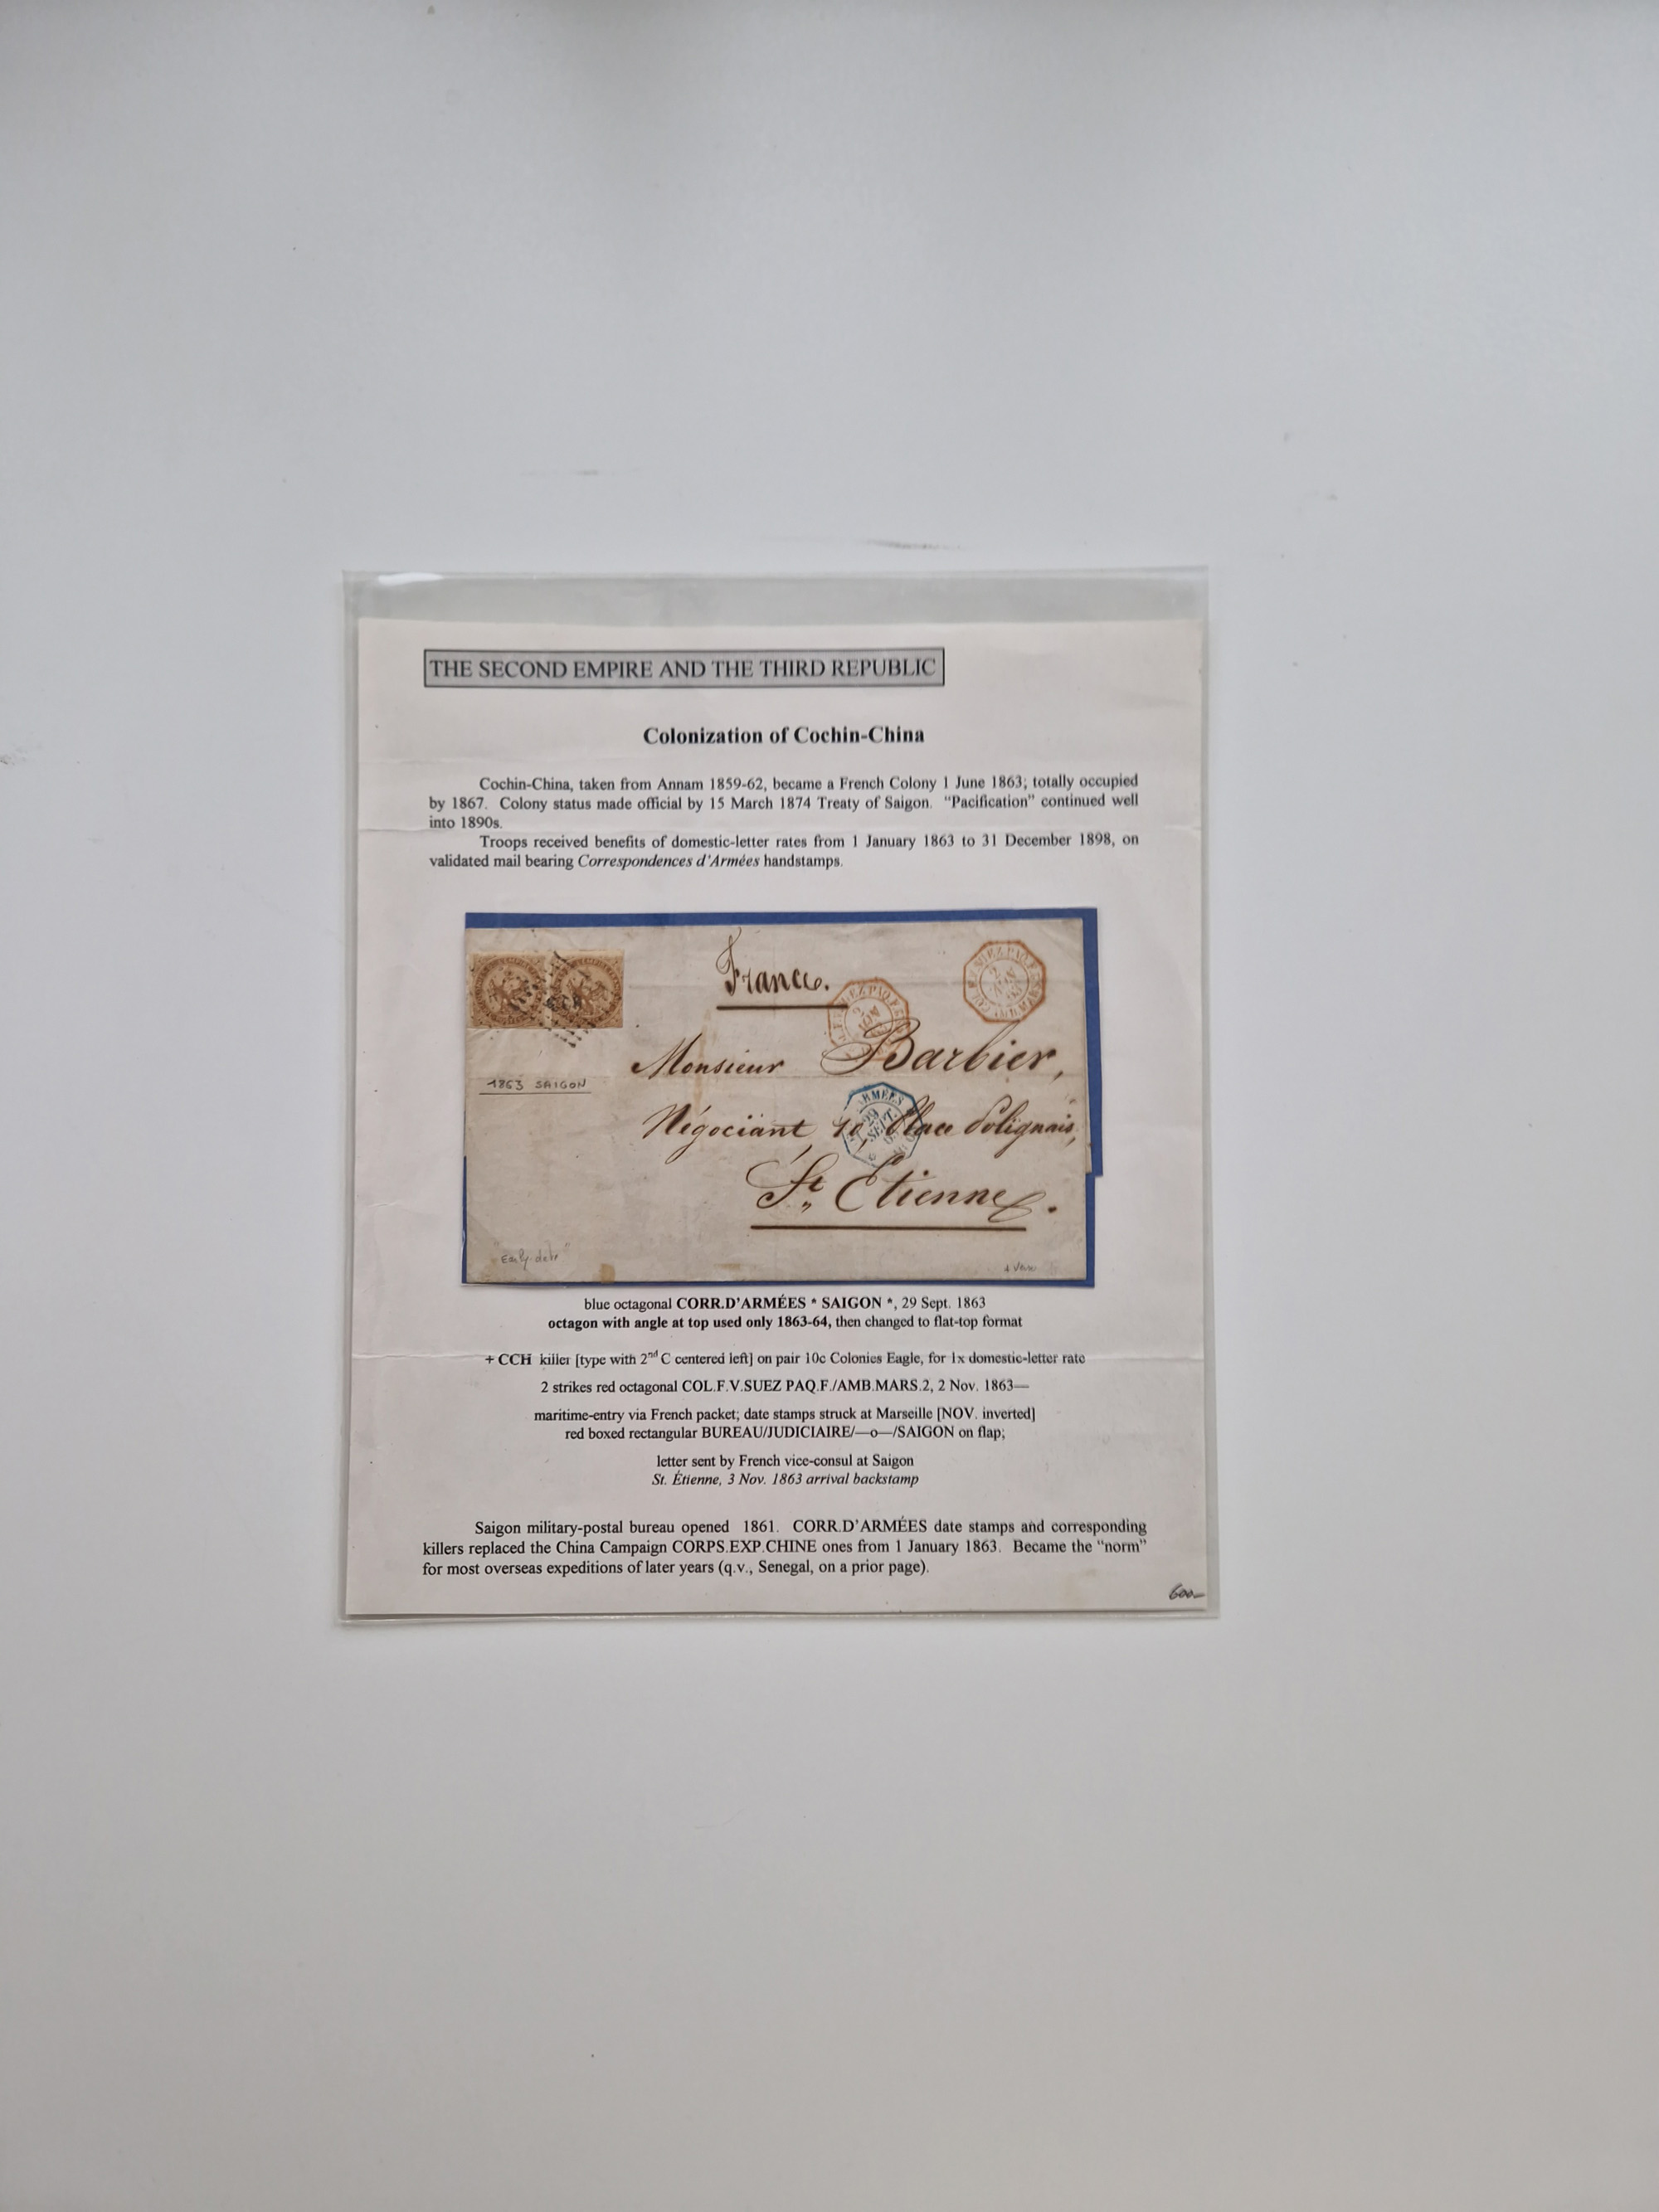 THE SECOND EMPIRE AND THE THIRD REPUBLIC
Colonization of Cochin-China
Cochin-China, taken from Annam 1859-62, became a French Colony 1 June 1863; totally occupied
by 1867. Colony status made official by 15 March 1874 Treaty of Saigon. “Pacification” continued well
into 1890s.
Troops received benefits of domestic-letter rates from 1 January 1863 to 31 December 1898, on
validated mail bearing Correspondences d’Armées handstamps.
France.
Monsieur Barbier,
1863 SAIGON
ARMÉES
29
SEPT.
Négociant, 10, Place Polignais,
St Etienne.
"Early date"
blue octagonal CORR.D’ARMÉES * SAIGON *, 29 Sept. 1863
octagon with angle at top used only 1863-64, then changed to flat-top format
+ CCH killer [type with 2nd C centered left] on pair 10c Colonies Eagle, for 1x domestic-letter rate
2 strikes red octagonal COL.F.V.SUEZ PAQ.F./AMB.MARS.2, 2 Nov. 1863—
maritime-entry via French packet; date stamps struck at Marseille [NOV. inverted]
red boxed rectangular BUREAU/JUDICIAIRE/—o—/SAIGON on flap;
letter sent by French vice-consul at Saigon
St. Étienne, 3 Nov. 1863 arrival backstamp
Saigon military-postal bureau opened 1861. CORR.D’ARMÉES date stamps and corresponding
killers replaced the China Campaign CORPS.EXP.CHINE ones from 1 January 1863. Became the “norm”
for most overseas expeditions of later years (q.v., Senegal, on a prior page).
600—